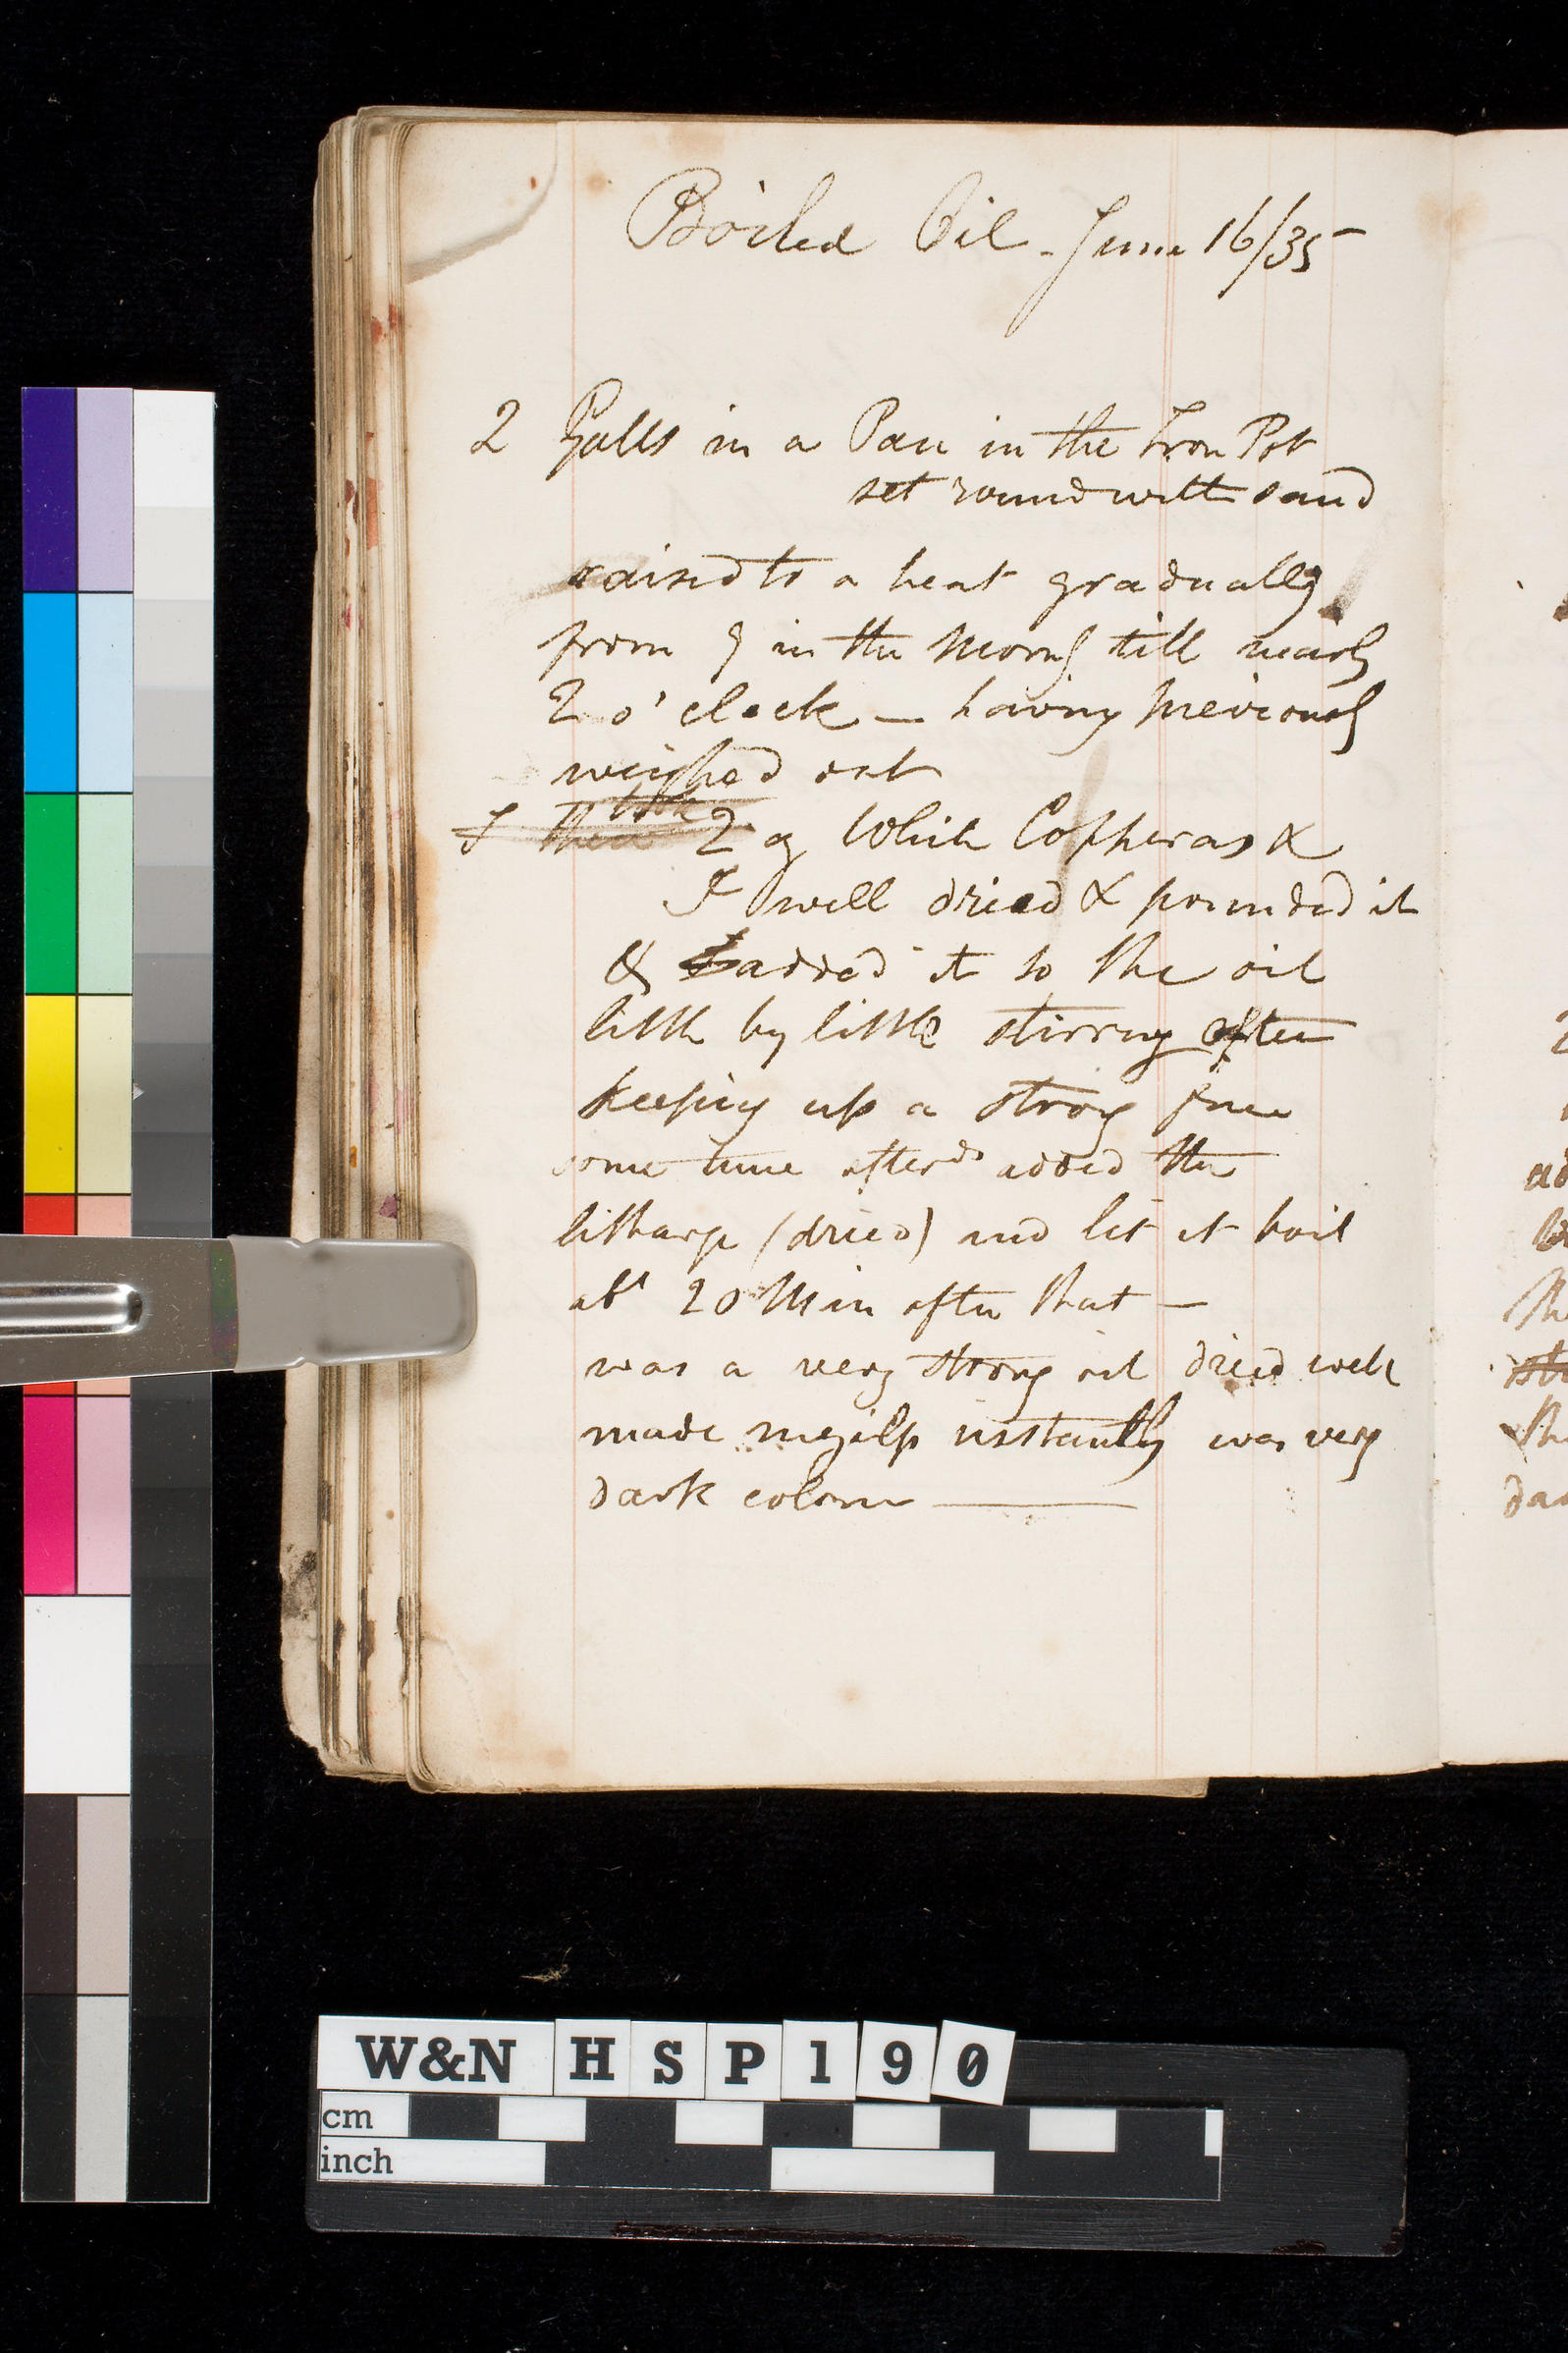 Boiled Oil - June 16/35
2 Galls in a Pan in the Iron Pot
set round with sand
raised to a heat gradually
from 9 in the Morng till nearly
2 o'clock — having previously
weighed out
I then took 2 White Copperas &
I well dried & pounded it
& added it to the oil
little by little stirring often
keeping up a strong fire
some time afterds added the
litharge (dried) and let it boil
abt 20 Min after that —
was a very strong oil dried well
made megilp instantly was very
dark colour —
W&N HSP190
cm
inch